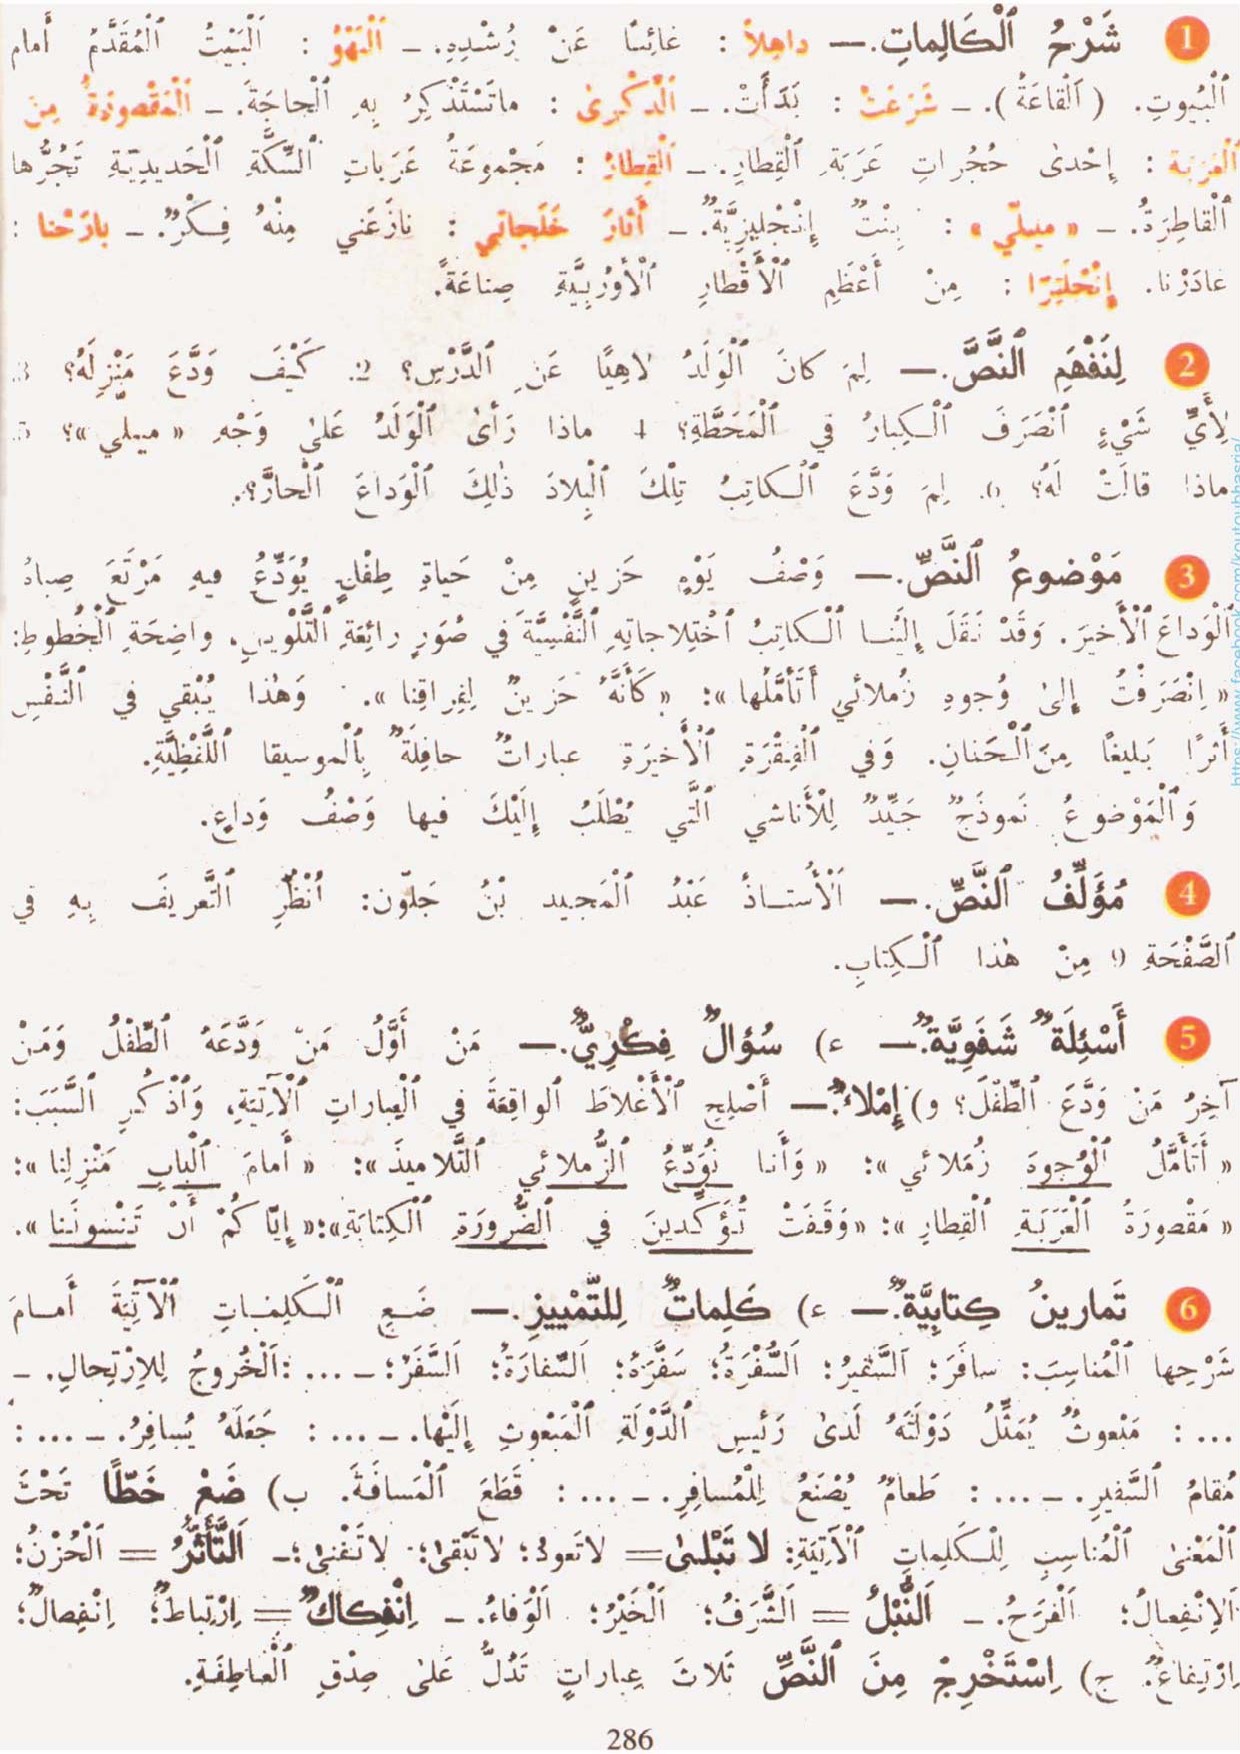 1 شَرْحُ ٱلْكَالِماتِ.— داهِلاً : غائِبًا عَنْ رُشْدِهِ. – اَلْبَهْوُ : اَلْبَيْتُ ٱلْمُقَدَّمُ أَمام
ٱلْبُيوتِ. ( اَلْقاعَةُ ). – شَرَعَتْ : بَدَأَتْ. – اَلذِّكْرىٰ : ماتَسْتَذْكِرُ بِهِ ٱلْحاجَةَ. – اَلْمَقْصورَةُ مِنَ
ٱلْعَرَبَة : إِحْدىٰ حُجُراتِ عَرَبَةِ ٱلْقِطارِ. – اَلْقِطارُ : مَجْموعَةُ عَرَباتِ ٱلسِّكَّةِ ٱلْحَديدِيَّةِ تَجُرُّها
ٱلْقاطِرَةُ. – « ميلّي » : بِنْتٌ إِنْجْليزِيَّةٌ. – أَثارَ خَلَجاتي : نازَعَني مِنْهُ فِكْرٌ. – بارَحْنا :
غادَرْنا. إِنْجْلَتِرَا : مِنْ أَعْظَمِ ٱلْأَقْطارِ ٱلْأورُبِيَّةِ صِناعَةً.
2 لِنَفْهَمِ ٱلنَّصَّ.— لِمَ كانَ ٱلْوَلَدُ لاهِيًا عَنِ ٱلدَّرْسِ؟ 2. كَيْفَ وَدَّعَ مَنْزِلَهُ؟ 3.
لِأَيِّ شَيْءٍ ٱنْصَرَفَ ٱلْكِبارُ في ٱلْمَحَطَّةِ؟ 4 ماذا رَأىٰ ٱلْوَلَدُ عَلىٰ وَجْهِ « ميلّي »؟ 5.
ماذا قالَتْ لَهُ؟ 6. لِمَ وَدَّعَ ٱلْكاتِبُ تِلْكَ ٱلْبِلادَ ذٰلِكَ ٱلْوَداعَ ٱلْحارَّ؟.
3 مَوْضوعُ ٱلنَّصِّ.— وَصْفُ يَوْمٍ حَزينٍ مِنْ حَياةِ طِفْلٍ يُوَدِّعُ فيهِ مَرْتَعَ صِباهُ
ٱلْوَداعَ ٱلْأَخيرَ. وَقَدْ نَقَلَ إِلَيْنا ٱلْكاتِبُ ٱخْتِلاجاتِهِ ٱلنَّفْسِيَّةَ في صُوَرٍ رائِعَةِ ٱلتَّلْوينِ، واضِحَةِ ٱلْخُطوطِ:
« اِنْصَرَفْتُ إِلىٰ وُجوهِ زُمَلائي أَتَأَمَّلُها »: « كَأَنَّهُ حَزينٌ لِفِراقِنا ». وَهٰذا يُبْقي في ٱلنَّفْسِ
أَثَرًا بَليغًا مِنَ ٱلْحَنانِ. وَفي ٱلْفِقْرَةِ ٱلْأَخيرَةِ عباراتٌ حافِلَةٌ بِٱلْموسيقا ٱللَّفْظِيَّةِ.
وَٱلْمَوْضوعُ نَموذَجٌ جَيِّدٌ لِلْأَناشي ٱلَّتي يُطْلَبُ إِلَيْكَ فيها وَصْفُ وَداعٍ.
4 مُؤَلِّفُ ٱلنَّصِّ.— اَلْأُستاذُ عَبْدُ ٱلْمَجيد بْنُ جَلّون: اُنْظُرِ ٱلتَّعْريفَ بِهِ في
ٱلصَّفْحَةِ 9 مِنْ هٰذا ٱلْكِتابِ.
5 أَسْئِلَةٌ شَفَوِيَّةٌ.— ء) سُؤالٌ فِكْرِيٌّ.— مَنْ أَوَّلُ مَنْ وَدَّعَهُ ٱلطِّفْلُ وَمَنْ
آخِرُ مَنْ وَدَّعَ ٱلطِّفْلَ؟ و) إِمْلاءٌ.— أَصْلِحِ ٱلْأَغْلاطَ ٱلواقِعَةَ في ٱلْعِباراتِ ٱلْآتِيَةِ، وَٱذْكُرِ ٱلسَّبَبَ:
« أَتَأَمَّلُ ٱلْوُجوهَ زُمَلائي »: « وَأَنا نُوَدِّعُ ٱلزُّملائي ٱلتَّلاميذَ »: « أَمامَ ٱلْبابِ مَنْزِلِنا »:
« مَقْصورَةُ ٱلْعَرَبَةِ ٱلْقِطارِ »: « وَقَفَتْ تُؤَكِّدينَ في ٱلضَّرورَةِ ٱلْكِتابَةِ»:« إِيّاكُمْ أَنْ تَنْسونَنا ».
6 تَمارينُ كِتابِيَّةٌ.— ء) كَلِماتٌ لِلتَّمْييزِ.— ضَعِ ٱلْكَلِماتِ ٱلْآتِيَةَ أَمامَ
شَرْحِها ٱلْمُناسِبَ: سافَرَ؛ اَلسَّفيرُ؛ اَلسُّفْرَةُ؛ سَفَّرَهُ؛ اَلسِّفارَةُ؛ اَلسَّفَرُ؛ – ... :اَلْخُروجُ لِلاِرْتِحالِ. –
... : مَبْعوثٌ يُمَثِّلُ دَوْلَتَهُ لَدىٰ رَئيسِ ٱلدَّوْلَةِ ٱلْمَبْعوثِ إِلَيْها. – ... : جَعَلَهُ يُسافِرُ. – ... :
مُقامُ ٱلسَّفيرِ. – ... : طَعامٌ يُصْنَعُ لِلْمُسافِرِ. – ... : قَطَعَ ٱلْمَسافَةَ. ب) ضَعْ خَطًّا تَحْتَ
ٱلْمَعْنىٰ ٱلْمُناسِبِ لِلْكَلِماتِ ٱلْآتِيَةِ: لا تَبْلىٰ= لاتَعودُ؛ لاتَبْقىٰ؛ لاتَفْنىٰ؛ – اَلتَّأَثُّرُ = اَلْحُزْنُ؛
اَلاِنْفِعالُ؛ اَلْفَرَحُ. – اَلنُّبْلُ = اَلشَّرَفُ؛ اَلْخَيْرُ؛ اَلْوَفاءُ. – اِنْفِكاكٌ = اِرْتِباطٌ؛ اِنْفِصالٌ؛
اِرْتِفاعٌ. ج) اِسْتَخْرِجْ مِنَ ٱلنَّصِّ ثَلاثَ عِباراتٍ تَدُلُّ عَلىٰ صِدْقِ ٱلْعاطِفَةِ.
286
https://www.facebook.com/koutoubhasria/